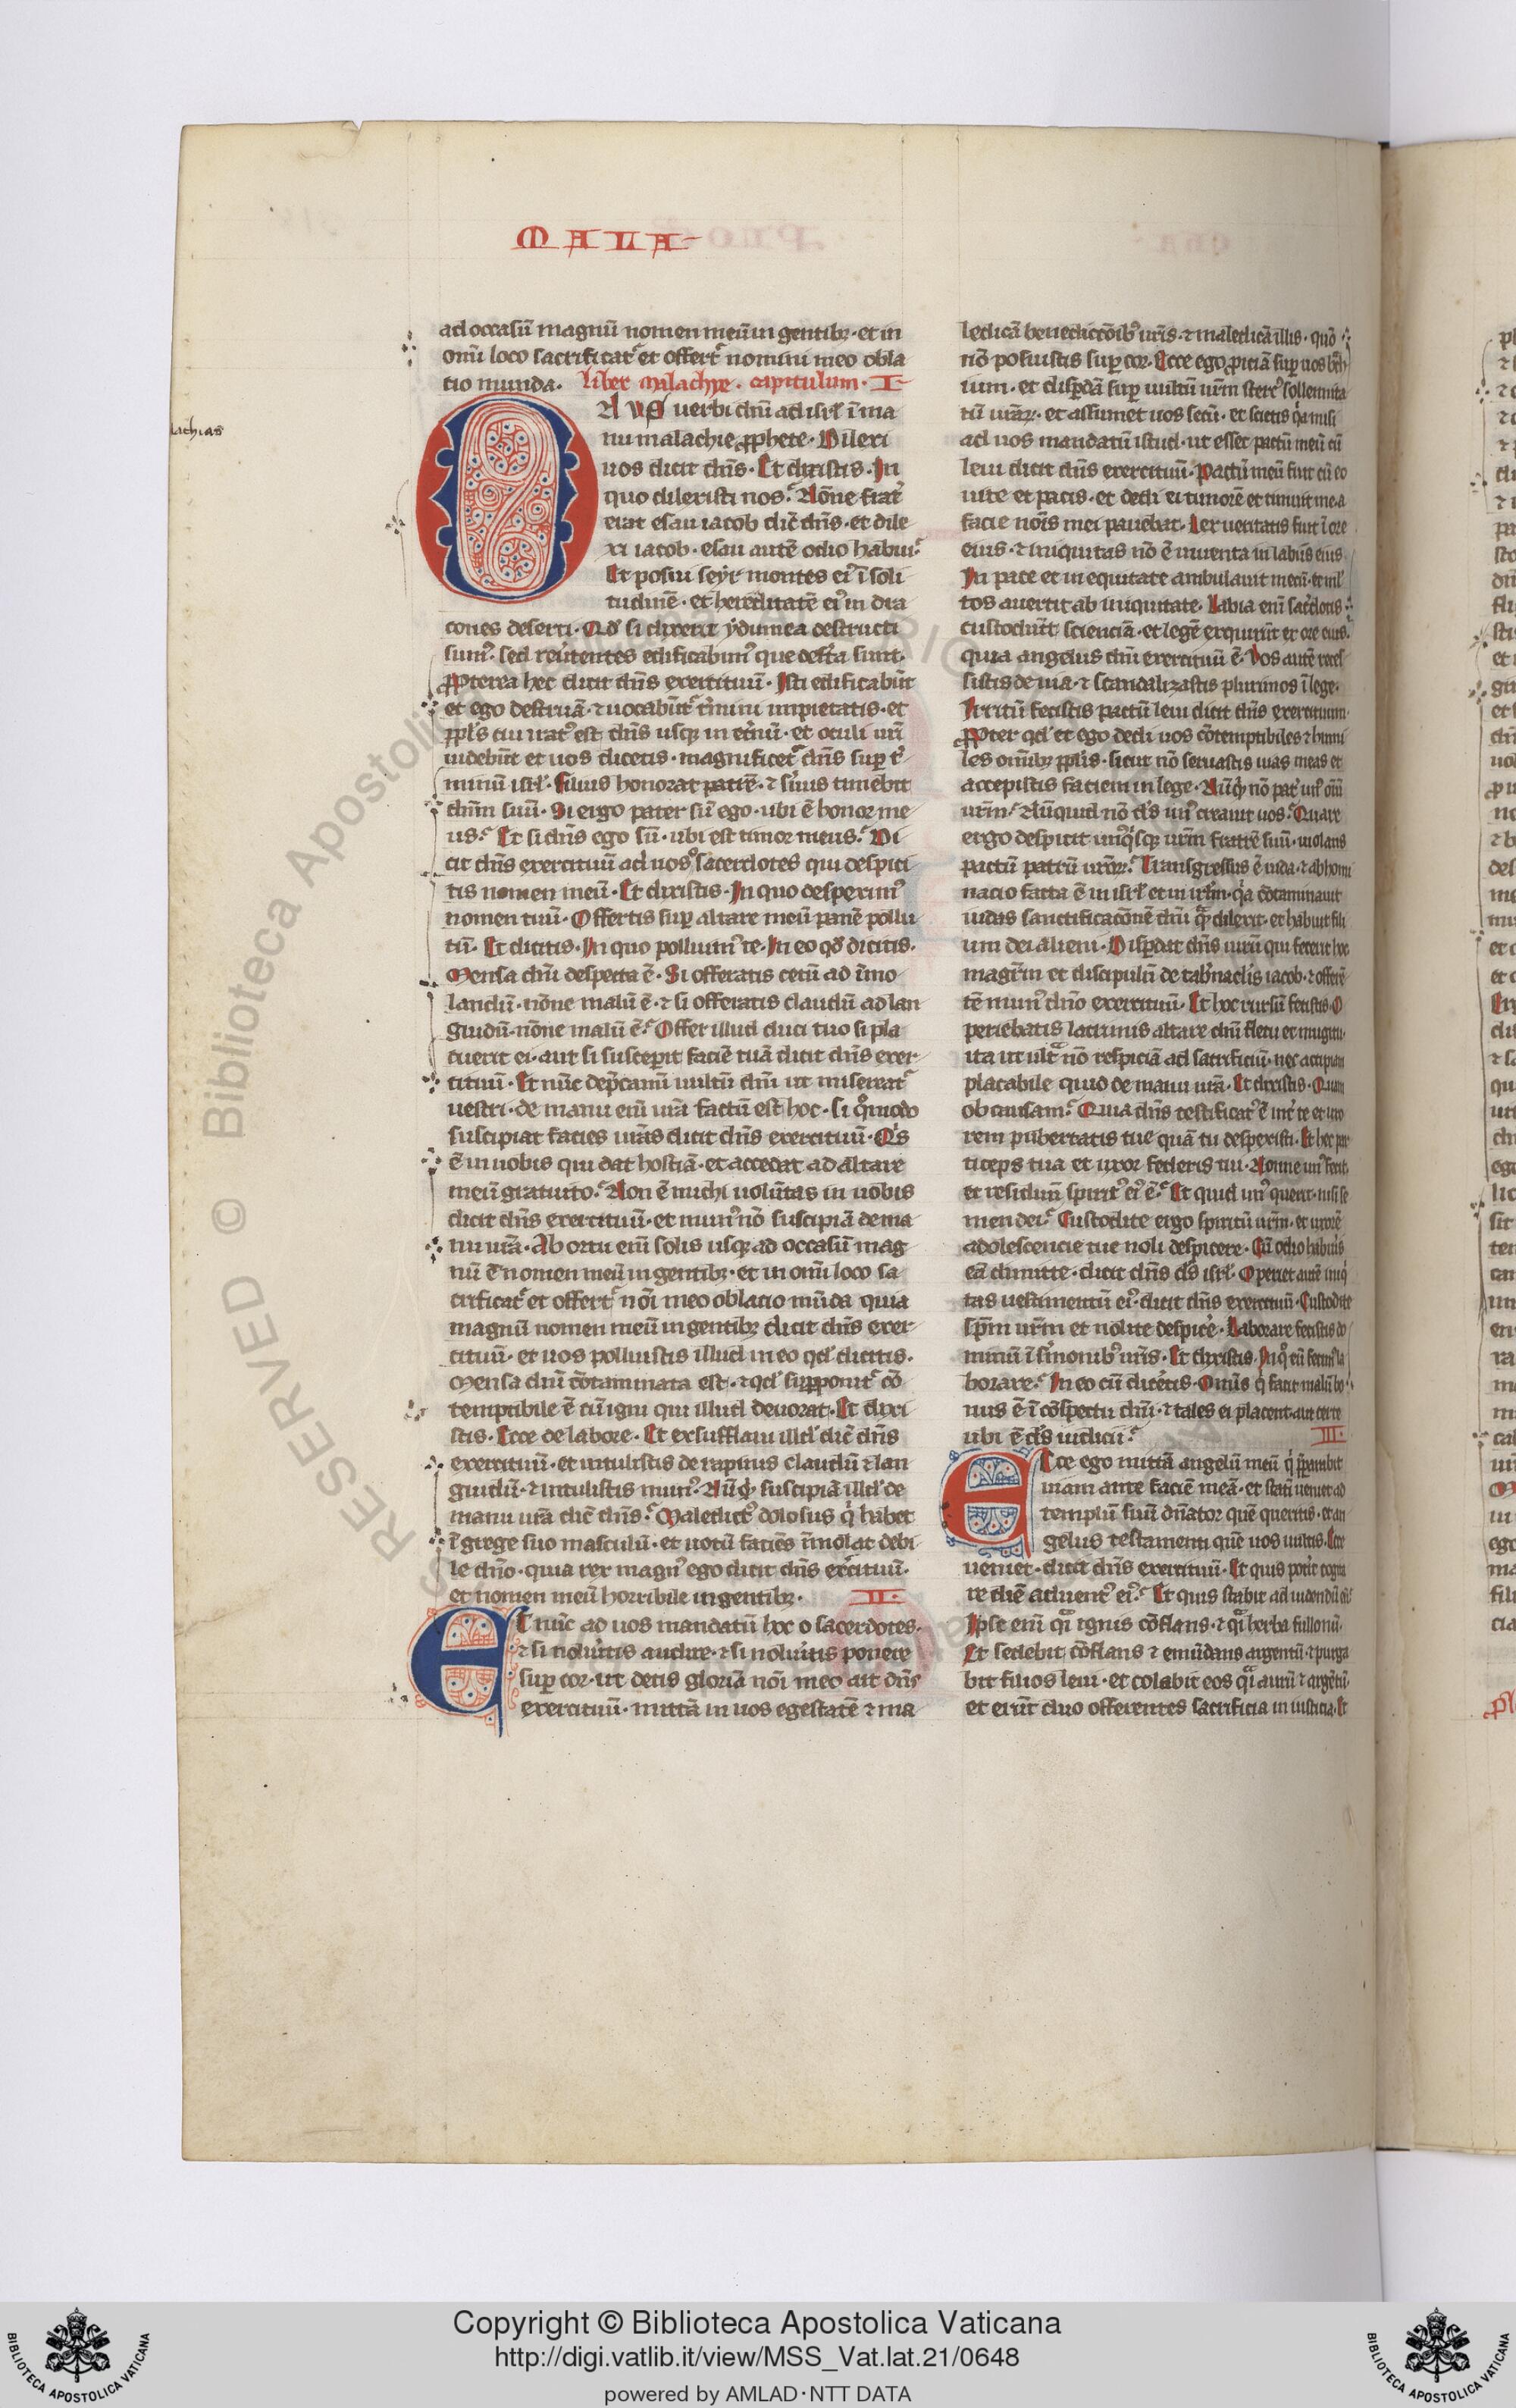 MALA
ad occasū magnū nomen meū in gentibꝫ · et in
om̄i loco sacrificat᷒ et offert᷒ nomini meo obla
tio munda. liber malachye . capitulum · I ·
lachias
ONUS uerbi dn̄i ad isrl̄ ī ma
nu malachie ꝓphete · Dilexi
uos dicit dn̄s · Et dixistis · In
quo dilexisti nos? Nōne frat̾
erat esau iacob dic̄ dn̄s · et dile
xi iacob · esau autē odio habui?
Et posui seyr montes ei᷒ ī soli
tudinē · et hereditatē ei᷒ in dra
cones deserti · Qd̓ si dixerit ydumea destructi
sum᷒ · sed reu̾tentes edificabim᷒ que dest̾cta sunt ·
ꝓpterea hec dicit dn̄s exercituū · Isti edificabūt
et ego destruā · ⁊ uocabūt᷒ t̾mini impietatis · et
ppl̓s cui irat᷒ est dn̄s usqꝫ in et̾nū · et oculi ur̄i
uidebūt et uos dicetis · magnificet᷒ dn̄s suꝑ t̾
minū isrl̓ · Filius honorat patrē · ⁊ s̾uus timebit
dn̄m suū · Si ergo pater sū ego · ubi ē honor me
us? Et si dn̄s ego sū · ubi est timor meus? Di
cit dn̄s exercituū ad uos o sacerdotes qui despici
tis nomen meū · Et dixistis · In quo despexim᷒
nomen tuū · Offertis suꝑ altare meū panē pollu
tū · Et dicitis · In quo polluim᷒ te · In eo qd̓ dicitis ·
Mensa dn̄i despecta ē · Si offeratis cecū ad īmo
landū · nōne malū ē · ⁊ si offeratis claudū ⁊ lan
guidū · nōne malū ē? Offer illud duci tuo si pla
cuerit ei · aut si susceꝑit faciē tuā dicit dn̄s exer
cituū · Et nūc dep̄camī uultū dn̄i ut misereat᷒
uestri · de manu eni ur̄a factū est hoc · si q̊modo
suscipiat facies ur̄as dicit dn̄s exercituū · Qis
ē in uobis qui dat hostiā · et accedat ad altare
meū gratuito? Non ē michi uolūtas in uobis
dicit dn̄s exercituū · et mun᷒ nō suscipiā de ma
nu ur̄a · Ab ortu eni solis usqꝫ ad occasū mag
nū ē nomen meū in gentibꝫ · et in om̄i loco sa
crificat᷒ et offert᷒ nōi meo oblacio mūda quia
magnū nomen meū in gentibꝫ dicit dn̄s exer
cituū · et uos polluistis illud in eo qd̓ dicitis ·
Mensa dn̄i cōtaminata est · ⁊ qd̓ suꝑponit᷒ cō
temptibile ē cū igni qui illud deuorat · Et dixi
stis · Ecce de labore · Et exsufflaui illd̓ dic̄ dn̄s
exercituū · et intulistis de rapinis claudū ⁊ lan
guidū · ⁊ intulistis mun᷒ · Nūqd̓ suscipiā illd̓ de
manu ur̄a dic̄ dn̄s? Maledict᷒ dolosus q̇ habet
ī grege suo masculū · et uotū faciēs īmolat debi
le dn̄o · quia rex magn᷒ ego dicit dn̄s exercituū ·
et nomen meū horribile in gentibꝫ · II ·
Et nūc ad uos mandatū hoc o sacerdotes ·
⁊ si nolu̾itis audire · ⁊ si nolu̾itis ponere
suꝑ cor · ut detis gloriā nōi meo ait dn̄s
exercituū · mittā in uos egestatē ⁊ ma
ledicā benedictōib᷒ ur̄is · ⁊ maledicā illis · quō
nō posuistis suꝑ cor · Ecce ego ꝓiciā suꝑ uos bch
ium · et disꝑdā suꝑ uultū ur̄m sterc᷒ sollemnita
tū ur̄aꝝ · et assumet uos secū · et scietis qa misi
ad uos mandatū istud · ut esset pactū meū cū
leui dicit dn̄s exercituū · Pactū meū fuit cū eo
uite et pacis · et dedi ei timorē et timuit me · a
facie nōis mei pauebat · Lex ueritatis fuit ī ore
eius · ⁊ iniquitas nō ē inuenta in labiis eius ·
In pace et in equitate ambulauit mecū · et ml̓
tos auertit ab iniquitate · Labia eni sac̾dotis
custodiūt scienciā · et legē exquirūt ex ore eius ·
quia angelus dn̄i exercituū ē · Uos autē reces
sistis de uia · ⁊ scandalizastis plurimos ī lege ·
Irritū fecistis pactū leui dicit dn̄s exercituum
ꝓpter qd̓ et ego dedi uos cōtemptibiles ⁊ humi
les om̄ibꝫ ppl̓is · sicut nō seruastis uias meas et
accepistis faciem in lege · Nūqd̓ nō pat̾ un᷒ om̄i
ur̄m? Nūquid nō d̓s un᷒ creauit uos? Quare
ergo despicit unq̇sqꝫ ur̄m fratrē suū · uiolans
pactū patrū ur̄oꝝ? Transgressus ē iuda · ⁊ abhomi
nacio facta ē in isrl̓ et in irlm̄ · qa cōtaminauit
iudas sanctificacōnē dn̄i quā dilexit · et habuit fili
um dei alieni · Disꝑdat dn̄s uirū qui fecerit hoc
magr̄m et discipulū de tab̾naclis iacob · ⁊ offerē
tē mun᷒ dn̄o exercituū · Et hoc rursū fecistis · O
periebatis lacrimis altare dn̄i fletu et mugitu ·
ita ut ultra nō respiciā ad sacrificiū · nec accipiam
placabile quid de manu ur̄a · Et dixistis · Quam
ob causam? Quia dn̄s testificat᷒ ē int̾ te et uxo
rem pubertatis tue quā tu despexisti · Et hec par
ticeps tua et uxor federis tui · Nonne un᷒ fecit
et residuū spirit᷒ ei᷒ ē? Et quid un᷒ querit · nisi se
men dei? Custodite ergo spiritū ur̄m · et uxorē
adolescencie tue noli despicere · Cū odio habu̾is
eā dimitte · dicit dn̄s d̓s isrl̓ · Operiet autē iniq̇
tas uestimentū ei᷒ dicit dn̄s exercituū · Custodite
sp̄m ur̄m et nolite despic̾e · Laborare fecistis do
minū ī s̾monib᷒ ur̄is · Et dixistis · In q̊ eū fecim᷒ la
borare? In eo cū dic̾etis · Om̄is q̇ facit malū bo
nus ē ī cōspectu dn̄i · ⁊ tales ei placent · aut certe
ubi ē d̓s iudicii? III ·
Ecce ego mittā angelū meū q̇ p̄parabit
uiam ante faciē meā · et stati ueniet ad
templū suū dn̄ator quē queritis · et an
gelus testamenti quē uos uultis · Ecce
ueniet · dicit dn̄s exercituū · Et quis pot̾it cogita
re diē aduent᷒ ei᷒ · Et quis stabit ad uidendū eū
Ipse eni q̄i ignis cōflans · ⁊ q̄i herba fullonū ·
Et sedebit cōflans ⁊ emūdans argentū · ⁊ purga
bit filios leui · et colabit eos q̄i aurū ⁊ argētū ·
et erūt dn̄o offerentes sacrificia in iusticia · Et
RESERVED © Biblioteca Apostolica
Copyright © Biblioteca Apostolica Vaticana
http://digi.vatlib.it/view/MSS_Vat.lat.21/0648
powered by AMLAD · NTT DATA
BIBLIOTECA APOSTOLICA VATICANA
BIBLIOTECA APOSTOLICA VATICANA